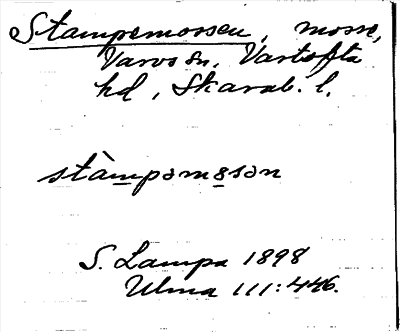 Stampemossen, mosse,
Varvs sn, Vartofta
hd, Skarab. l.
stàmpəmɷsən
S. Lampa 1898
Ulma 111:446.